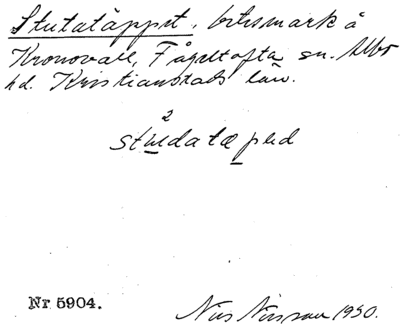 Stutatäppet, betesmark å
Kronovall, Fågeltofta sn. Albo
hd. Kristianstads län.
2
studatæped
Nr 5904.
Nils Nilsson 1930.